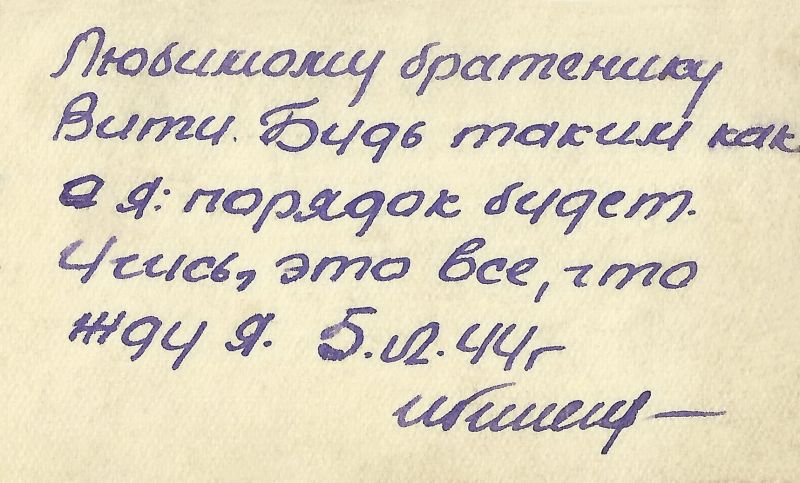 Любимому братенику
Вити. Будь таким как
я: порядок будет.
Учись, это все, что
жду я. 5.VI.44г